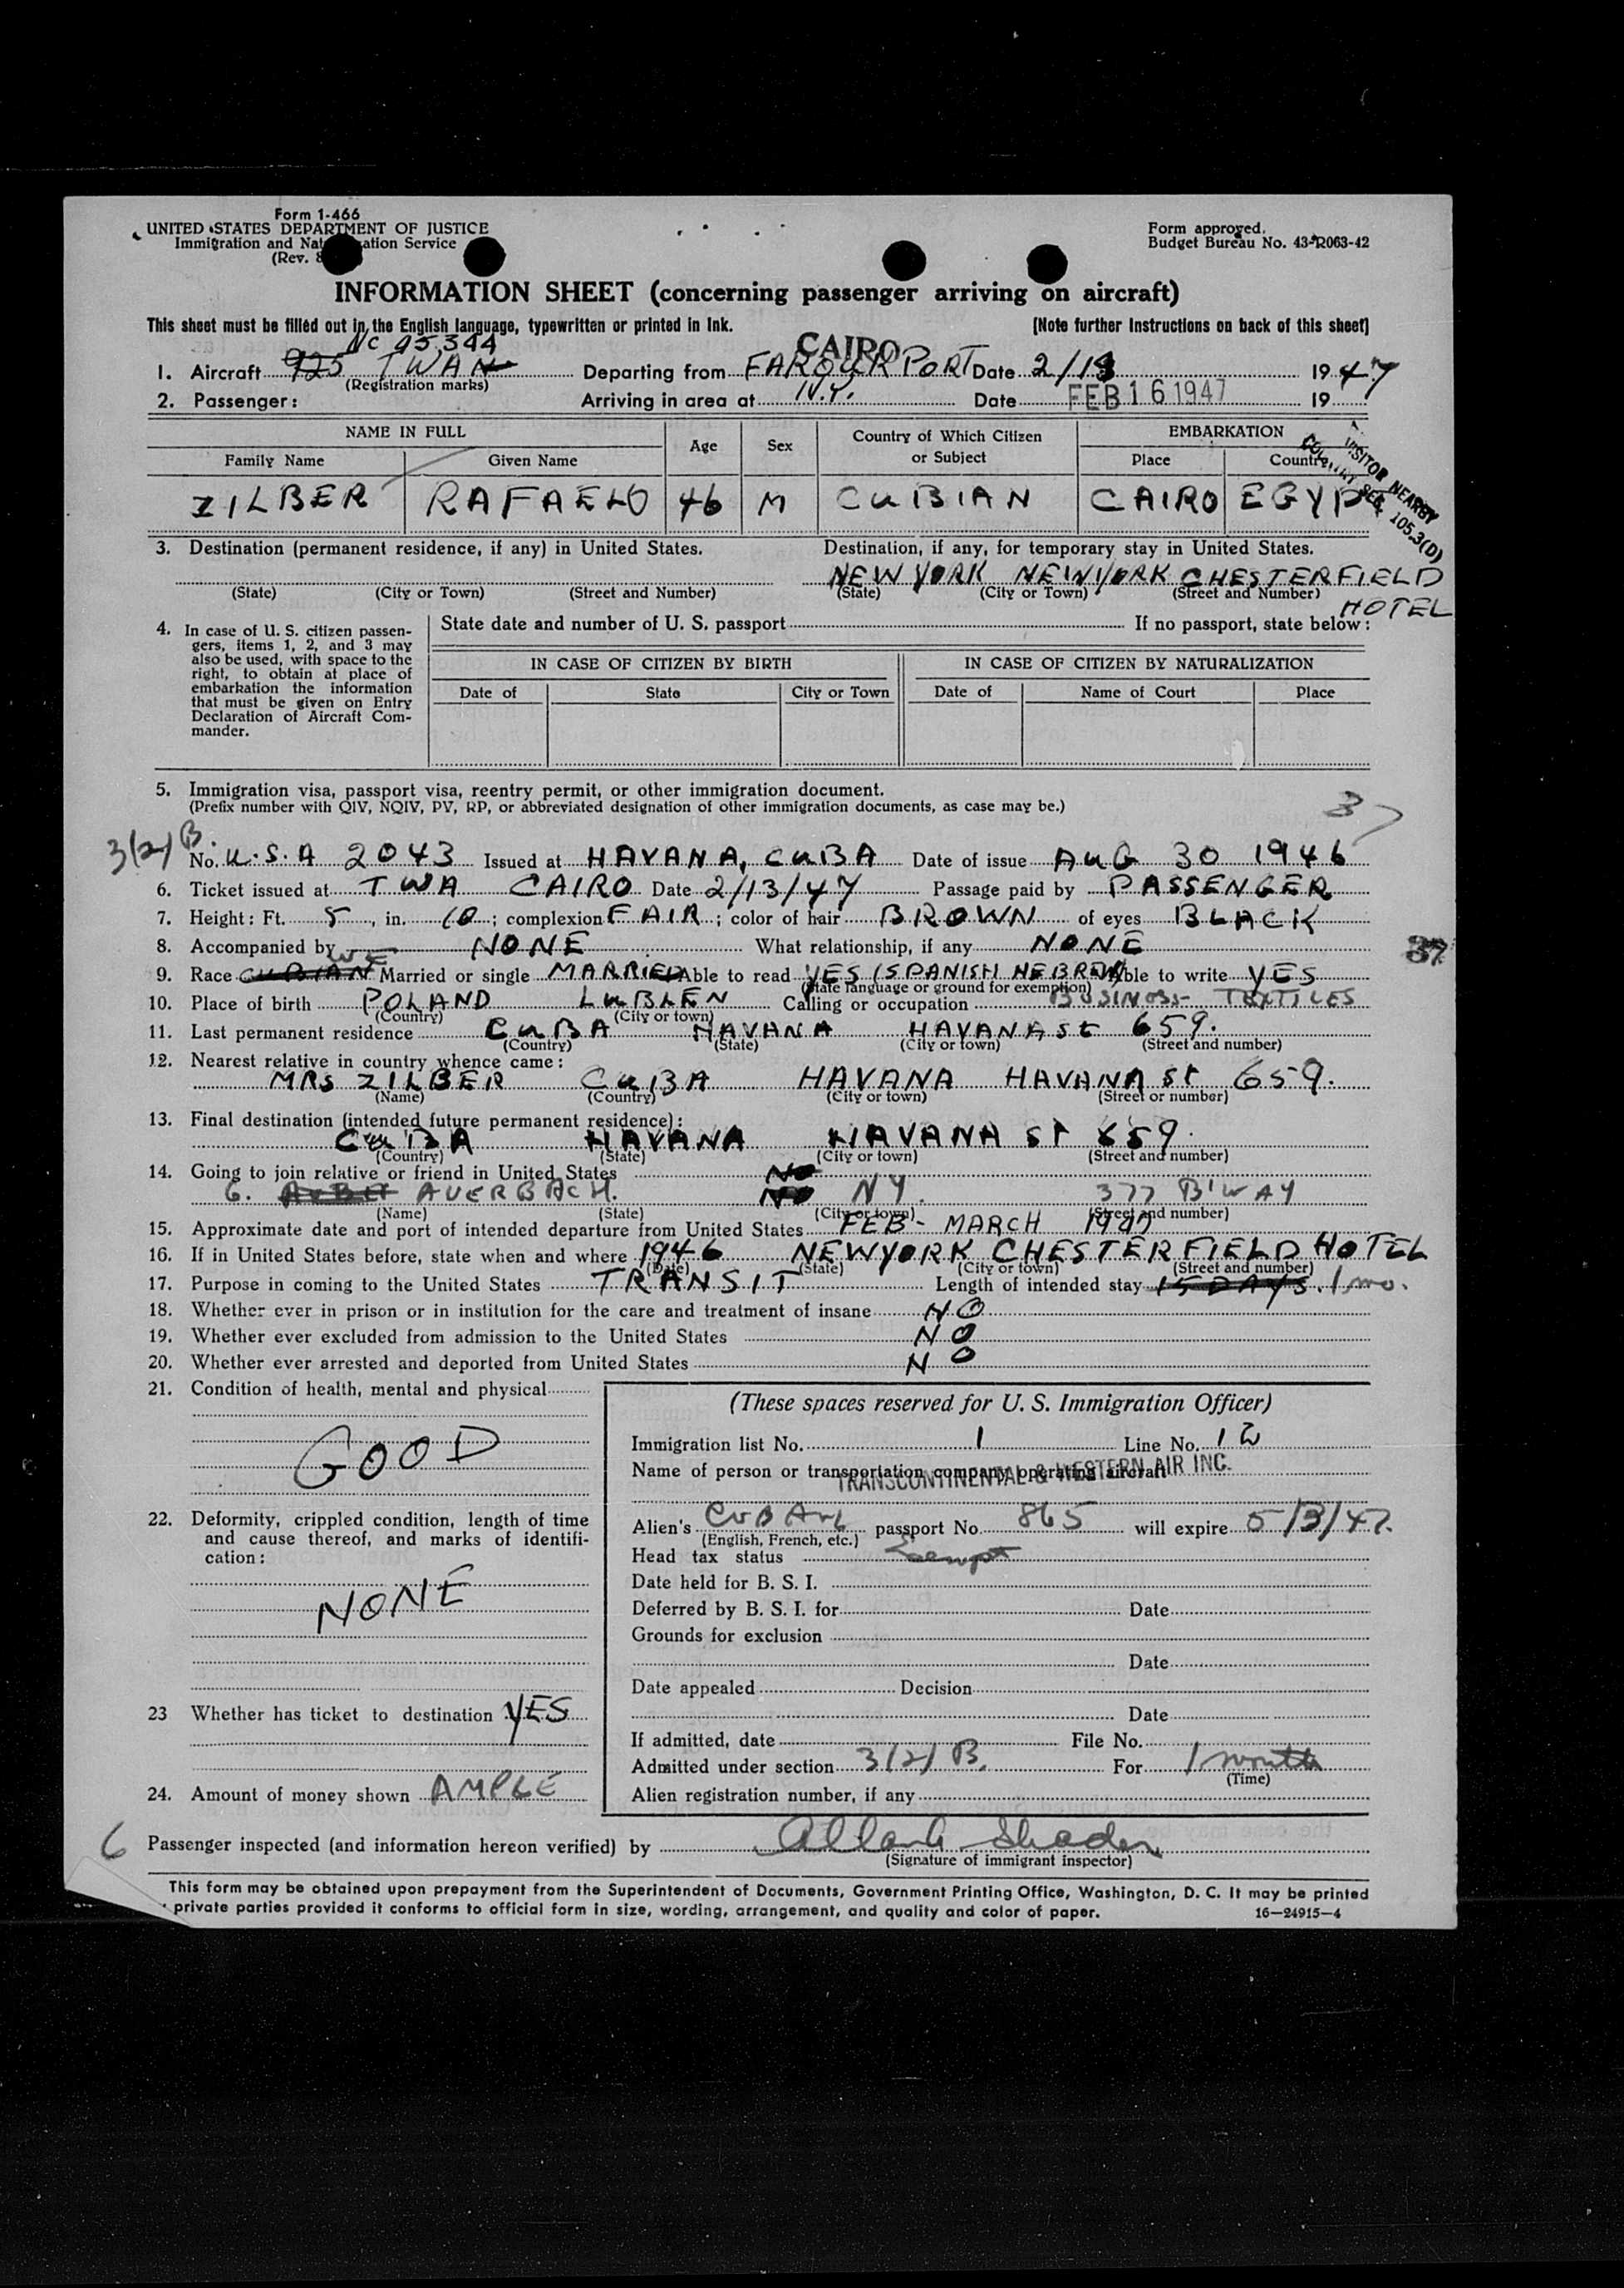 Form 1-466
UNITED STATES DEPARTMENT OF JUSTICE
Immigration and Nat ation Service
(Rev. 8
Form approved.
Budget Bureau No. 43-R063-42
INFORMATION SHEET (concerning passenger arriving on aircraft)
This sheet must be filled out in the English language, typewritten or printed in ink. [Note further instructions on back of this sheet]
NC 95344 CAIRO
1. Aircraft 925 TWA Departing from FAROUK PORT Date 2/13 1947
(Registration marks)
2. Passenger: Arriving in area at N.Y. Date FEB 16 1947 19
NAME IN FULL Age Sex Country of Which Citizen or Subject EMBARKATION
Family Name Given Name Place Country
VISITOR NEARBY
COUNTRY SEC. 105.3(D)
ZILBER RAFAELO 46 M CUBIAN CAIRO EGYPT
3. Destination (permanent residence, if any) in United States. Destination, if any, for temporary stay in United States.
NEW YORK NEWYORK CHESTERFIELD
(State) (City or Town) (Street and Number) (State) (City or Town) (Street and Number)
HOTEL
4. In case of U. S. citizen passen-
gers, items 1, 2, and 3 may
also be used, with space to the
right, to obtain at place of
embarkation the information
that must be given on Entry
Declaration of Aircraft Com-
mander.
State date and number of U. S. passport If no passport, state below:
IN CASE OF CITIZEN BY BIRTH IN CASE OF CITIZEN BY NATURALIZATION
Date of State City or Town Date of Name of Court Place
5. Immigration visa, passport visa, reentry permit, or other immigration document.
(Prefix number with QIV, NQIV, PV, RP, or abbreviated designation of other immigration documents, as case may be.)
37
3(2)B.
No. U.S.A 2043 Issued at HAVANA, CUBA Date of issue AUG 30 1946
6. Ticket issued at TWA CAIRO Date 2/13/47 Passage paid by PASSENGER
7. Height: Ft. 5, in. 10; complexion FAIR; color of hair BROWN of eyes BLACK
8. Accompanied by NONE What relationship, if any NONE
37
9. Race CUBIAN Married or single MARRIED Able to read YES (SPANISH HEBREW Able to write YES
(State language or ground for exemption)
10. Place of birth POLAND LUBLEN Calling or occupation BUSINESS- TEXTILES
(Country) (City or town)
11. Last permanent residence CUBA HAVANA HAVANA St 659.
(Country) (State) (City or town) (Street and number)
12. Nearest relative in country whence came:
MRS ZILBER CUBA HAVANA HAVANA St 659.
(Name) (Country) (City or town) (Street or number)
13. Final destination (intended future permanent residence):
CUBA HAVANA HAVANA St 659.
(Country) (State) (City or town) (Street and number)
14. Going to join relative or friend in United States NO
G. AVERBACH. NO NY. 377 B'WAY
(Name) (State) (City or town) (Street and number)
15. Approximate date and port of intended departure from United States FEB - MARCH 1947
16. If in United States before, state when and where 1946 NEWYORK CHESTERFIELD HOTEL
(Date) (State) (City or town) (Street and number)
17. Purpose in coming to the United States TRANSIT Length of intended stay 15 DAYS. 1 mo.
18. Whether ever in prison or in institution for the care and treatment of insane NO
19. Whether ever excluded from admission to the United States NO
20. Whether ever arrested and deported from United States NO
21. Condition of health, mental and physical
GOOD
22. Deformity, crippled condition, length of time
and cause thereof, and marks of identifi-
cation:
NONE
23 Whether has ticket to destination YES
24. Amount of money shown AMPLE
(These spaces reserved for U. S. Immigration Officer)
Immigration list No. 1 Line No. 12
Name of person or transportation company operating aircraft
TRANSCONTINENTAL & WESTERN AIR INC.
Alien's CUBAN passport No. 865 will expire 5/3/47.
(English, French, etc.)
Head tax status Exempt
Date held for B. S. I.
Deferred by B. S. I. for Date
Grounds for exclusion
Date
Date appealed Decision
Date
If admitted, date File No.
Admitted under section 3(2)B. For 1 month
(Time)
Alien registration number, if any
6
Passenger inspected (and information hereon verified) by
(Signature of immigrant inspector)
This form may be obtained upon prepayment from the Superintendent of Documents, Government Printing Office, Washington, D. C. It may be printed
private parties provided it conforms to official form in size, wording, arrangement, and quality and color of paper. 16—24915-4